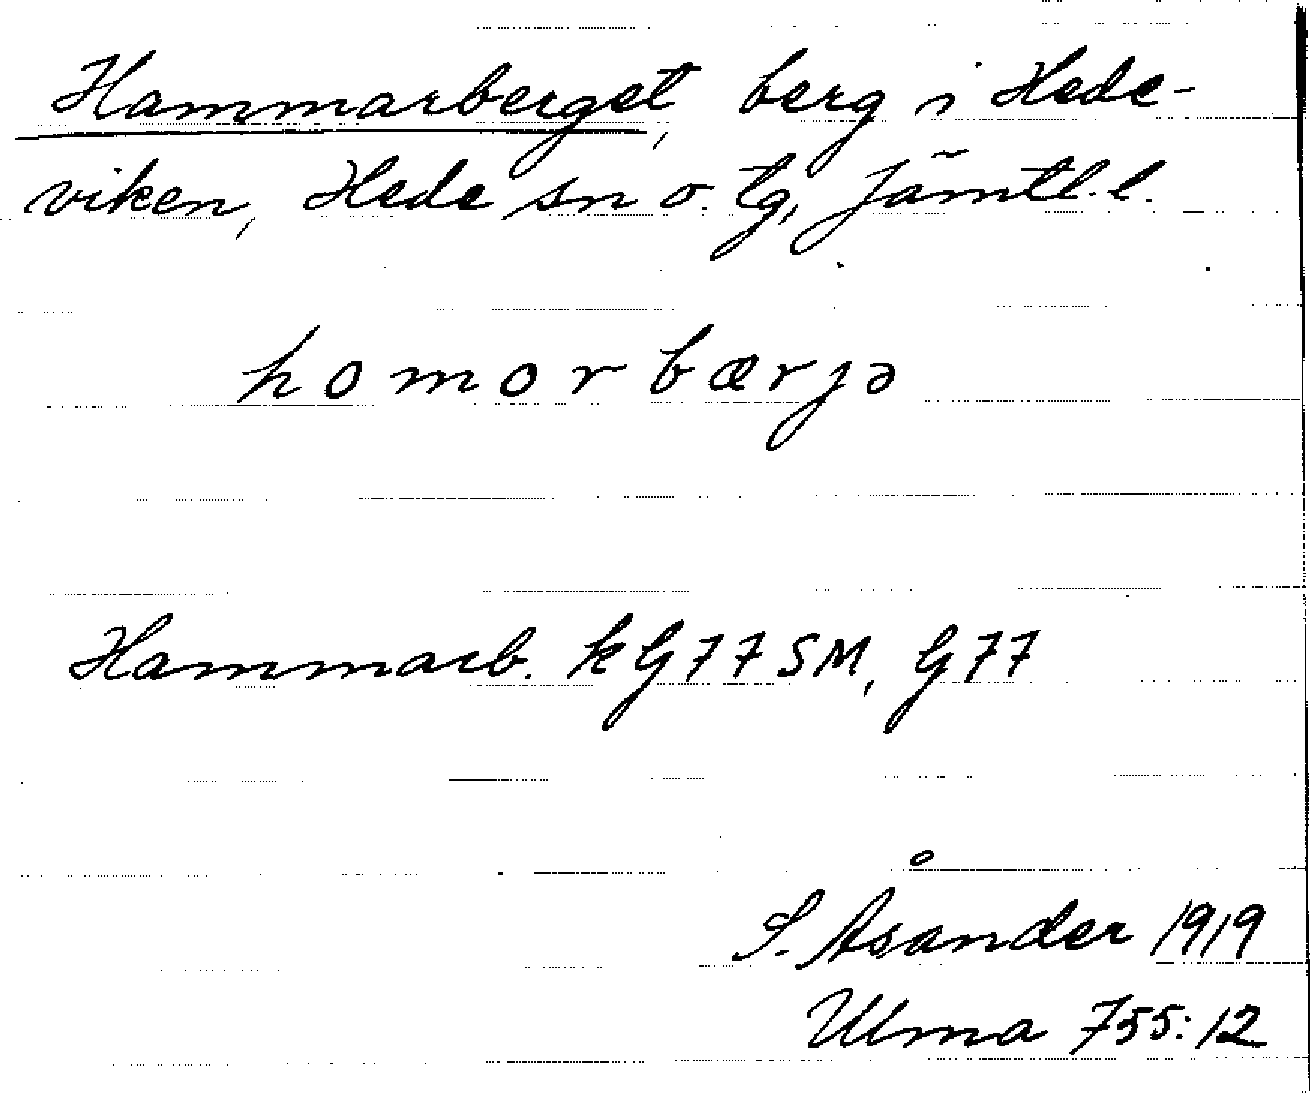 Hammarberget, berg i Hede-
viken, Hede sn o. tg, Jämtl. l.
homorbærjə
Hammarb. kG77SM, G77
S. Åsander 1919
Ulma 755:12